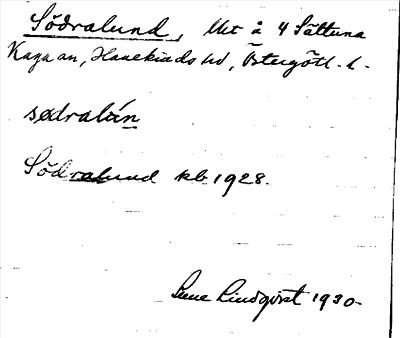 Södralund, lht å 4 Sättuna
Kaga sn, Hanekinds hd, Östergötl. l.
sødralún
Södralund kb 1928.
Sune Lindqvist 1930.